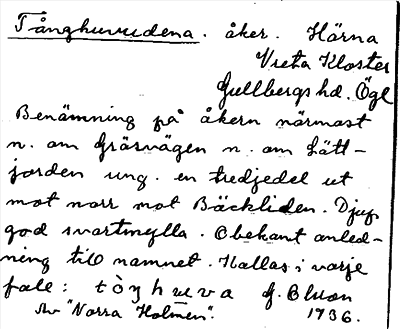 Tånghuvudena. åker. Härna
Vreta Kloster
Gullbergs hd. Ögl
Benämning på åkern närmast
n. om Gröavägen n. om Lätt-
jorden ung. en tredjedel ut
mot norr mot Bäckliden. Djup
god svartmylla. Obekant anled-
ning till namnet. Kallas i varje
fall: tòŋhuva
Av "Norra Holmen". 1936.